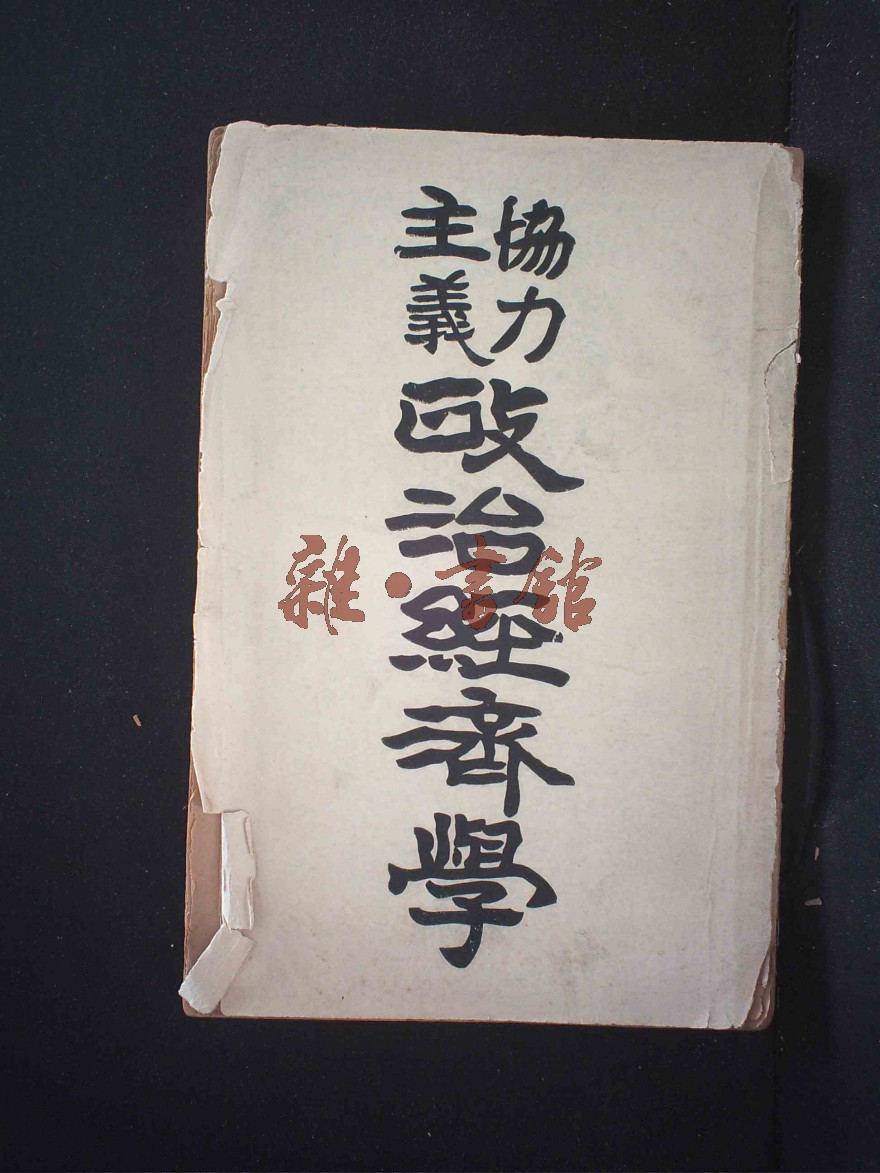 協力
主義
政治經濟學
雜·書館